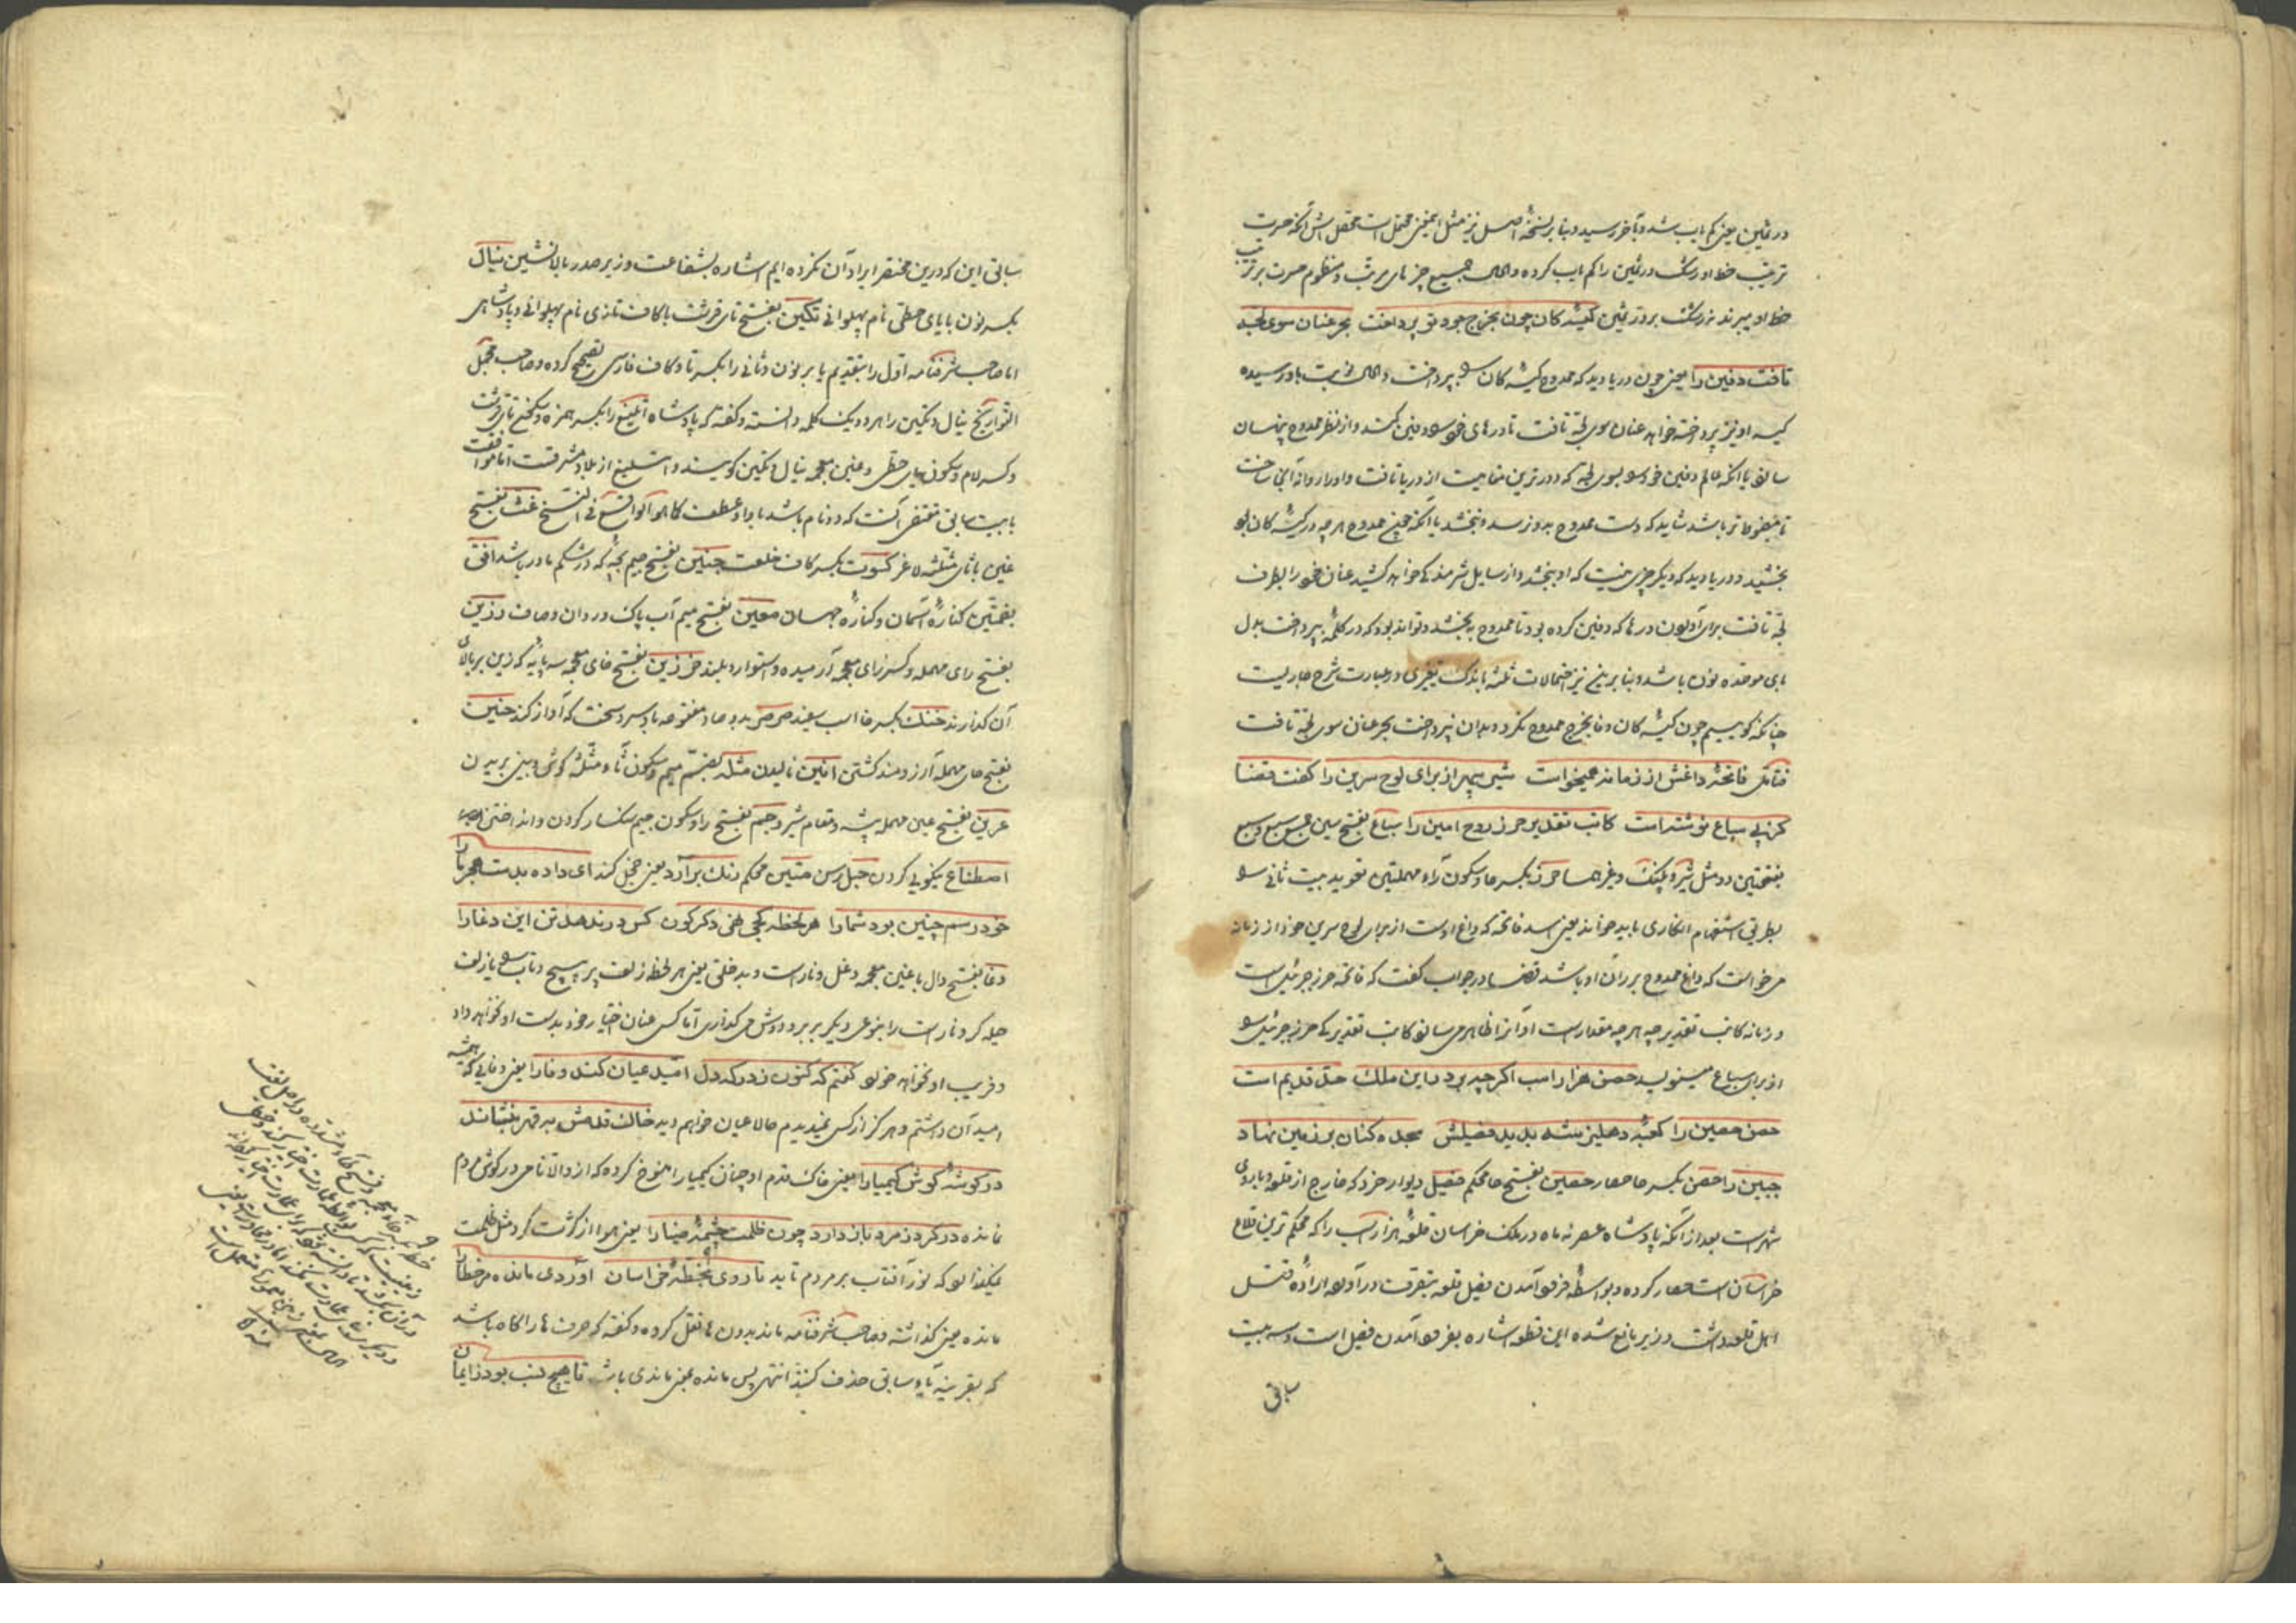 در ثمین یعنی کم یاب شد و بآخر رسید و بنا بر نسخهٔ اصل نیز مثل این معنی محتمل است محصل اش آنکه حسرت
ترتیب خط او رشک در ثمین را کم یاب کرده و الحال جمیع چیزهای مرتب و منظوم حسرت بر ترتیب
خط او میبرند نه رشک بر در ثمین کیسهٔ کان چون بخرج جود تو پرداخت بحر عنان سوی لجه
تافت دفین را یعنی چون دریا دید که ممدوح کیسهٔ کان را بپرداخت و الحال نوبت باو رسیده
کیسه او نیز پرداخته خواهد عنان سوی لجه تافت تا درهای خود را دفین کند و از نظر ممدوح پنهان
سازد یا آنکه عالم دفین خود را بسوی لجه که دورترین مقامیست از دریا تافت و او را روانهٔ آنجا ساخت
تا محفوظ تر باشد شاید که دست ممدوح بدو نرسد و نبخشد یا آنکه چون ممدوح هر چه در کیسهٔ کان بود
بخشید و دریا دید که دیگر چیزی نیست که او ببخشد و از سایل شرمنده خواهد کشید عنان خود را بطرف
لجه تافت برای آوردن درها که دفین کرده بود تا ممدوح به بخشد و تواند بود که در کلمهٔ بپرداخت بدل
بای موحده نون باشد و بنا برین نیز احتمالات ثلثه باندک تغییری در عبارت شرح جاریست
چنانکه گوییم چون کیسهٔ کان وفا بخرج ممدوح نکرد و بدان نپرداخت بحر عنان سوی لجه تافت
فتامل فاتحهٔ داغش از زمانه همیخواست شیر سپهر از برای لوح سرین را گفت قضا
کز پی سباع نوشتست کاتب تقدیر حرز روح امین را سباع بفتح سین جمع سبع و سبع
بفتحتین دد مثل شیر و پلنک و غیرهما حرز بکسر حا و سکون راء مهملتین تعوید بیت ثانی را
بطریق استفهام انکاری باید خواند یعنی اسد فاتحه که داغ اوست از برای لوح سرین خود از زمانه
می‌خواست که داغ ممدوح بر ران او باشد قضا در جواب گفت که فاتحه حرز جبرئیل است
و زمانه کاتب تقدیر چه هر چه مقدار است او آنرا ظاهر می‌سازد کاتب تقدیر کی حرز جبرئیل را
از برای سباع مینویسد حصن هزارسب اگرچه بر در این ملک حق قدیم است
حصن حصین را کعبهٔ دهلیز شه بدید فصیلش سجده کنان بر زمین نهاد
جبین را حصن بکسر حا حصار حصین بفتح حا محکم فصیل دیوار خرد که خارج از قلعه و باروی
شهر است بعد از آنکه پادشاه عصر نه ماه در ملک خراسان قلعهٔ هزارسب را که محکم ترین قلاع
خراسان است حصار کرده و بواسطهٔ فرود آمدن فصیل قلعه بتصرف در آورد ارادهٔ قتل
اهل قلعه داشت وزیر مانع شده این قطعه اشاره بفرود آمدن فصیل است و سه بیت
سابق
سابق این که درین مختصر ایراد آن نکرده ایم اشاره بشفاعت وزیر صدر بالانشین نیال
بکسر نون با یای حطی نام پهلوانی تکین بفتح تای قرشت با کاف تازی نام پهلوانی و پادشاهی
اما صاحب شرفنامه اول را بتقدیم یا بر نون و ثانی را بکسر تا و کاف فارسی تصحیح کرده و صاحب مجمل
التواریخ نیال و تکین را هر دو یک کلمه دانسته و گفته که پادشاه ایلیغ را بکسر همزه و سکون تای قرشت
و کسر لام و سکون یای حطی و غین معجمه نیال تکین گویند و ایلیغ از بلاد مشرقست اما موافقت
با بیت سابق مقتضی آنست که دو نام باشد با واو عطف کما هو الواقع فی النسخ غث بفتح
غین با ثای مثلثه لاغر کسوت بکسر کاف خلعت جنین بفتح جیم بچه که در شکم مادر باشد افق
بضمتین کنارهٔ آسمان و کنارهٔ جهان معین بفتح میم آب پاک و روان و صاف رزین
بفتح رای مهمله و کسر زای معجمه آرمیده و استوار و بلند خرزین بفتح خای معجمه سه پایه که زین بر بالای
آن گذارند خنک بکسر خا اسب سفید صرصر بدو صاد مفتوحه باد سرد و سخت که آواز کند حنین
بفتح حای مهمله آرزومند گشتن انین نالیدن مثله بضم میم و سکون ثاء مثلثه گوش و بینی بریدن
عرین بفتح عین مهمله بیشه و مقام شیر رجم بفتح را و سکون جیم سنکسار کردن و انداختن
اصطناع نیکویی کردن حبل رسن متین محکم رنک برآرد یعنی خجل کند ای داده بدست هجر ما را
خود رسم چنین بود شما را هر لحظه کجی نهی دگر گون کس در ندهد تن این دغا را
دغا بفتح دال با غین معجمه دغل و نا راست و بد خلقی یعنی هر لحظه زلف پر پیچ و تاب را یا زلف
حیله گر و نا راست را بنوعی دیگر بر بر و دوش می‌گذاری اما کس عنان اختیار خود بدست او نخواهد داد
و فریب او نخواهد خورد گفتم که کنون ز درگه دل امید عیان کند وفا را یعنی وفایی که همیشه
امید آن داشتم و هرگز از کس نمیدیدم حالا عیان خواهم دید خاک قدمش بقهر بنشاند
در گوشهٔ گوش کیمیا را یعنی خاک قدم او چنان کیمیا را منسوخ کرده که از و الا نامی در گوش مردم
نمانده در گرد ز مرد باز دارد چون ظلمت چشمهٔ ضیا را یعنی هوا از کثرت گرد مثل ظلمت
نمیگذارد که نور آفتاب بر مردم تابد تا روی بخطهٔ خراسان آوردی مانده مر خطا را
مانده یعنی گذاشته و صاحب شرفنامه ماند بدون ها نقل کرده و گفته که حرف ها را گاه باشد
که بقرینهٔ یاء سابق حذف کنند انتهی پس مانده بمعنی ماندی باشد تا هیچ سبب بود ز ایمان